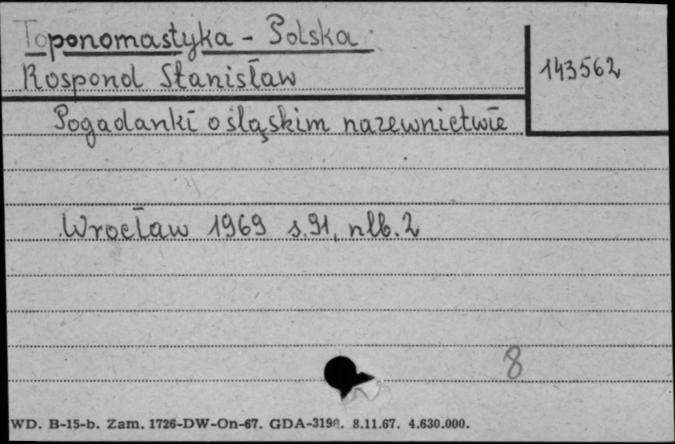 Toponomastyka - Polska
Rospond Stanisław
143562
Pogadanki o śląskim nazewnictwie
Wrocław 1969 s.91, nlb.2
8
WD. B-15-b. Zam. 1726-DW-On-67. GDA-3190. 8.11.67. 4.630.000.